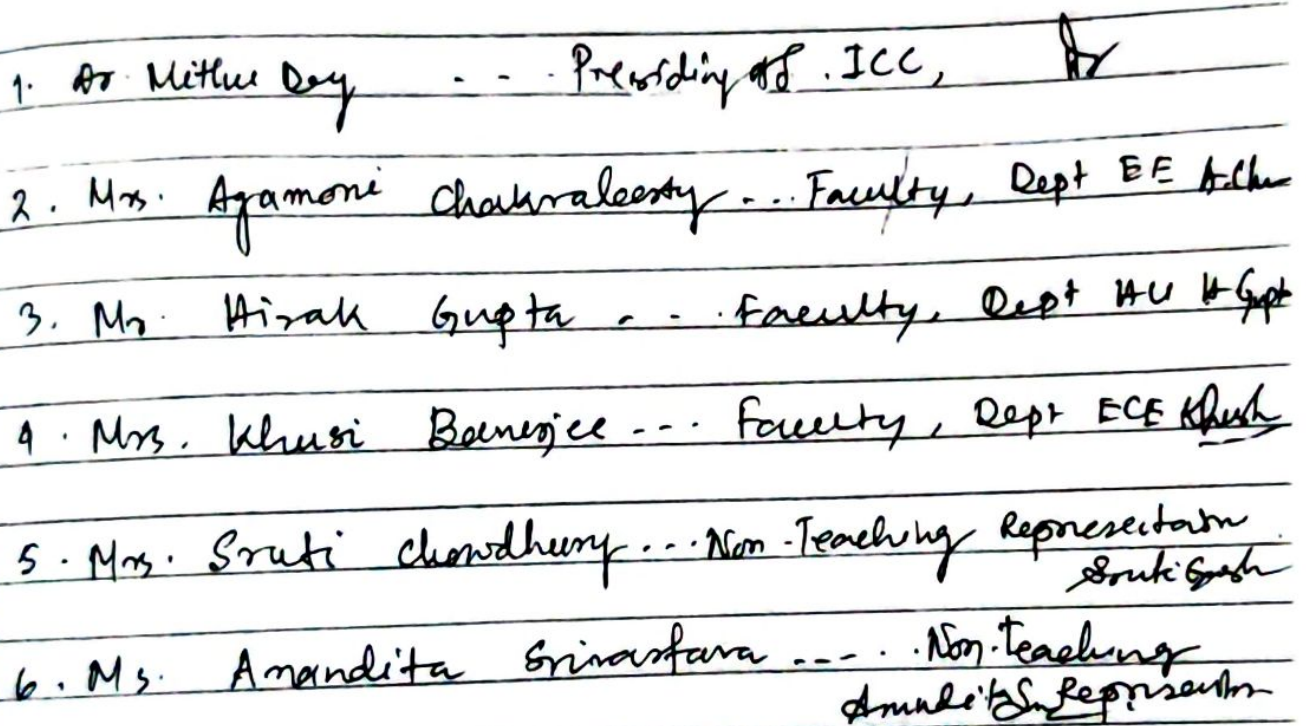 1. Dr Mithu Dey --- Presiding off. ICC,
2. Mrs. Agamoni Chakraborty --- Faculty, Dept EE A.Cha
3. Mr. Hirak Gupta --- Faculty, Dept HU H Gupt
4. Mrs. Khusi Banerjee --- Faculty, Dept ECE Khush
5. Mrs. Sruti Chowdhury --- Non-Teaching Representativ
Sruti Ghosh
6. Ms. Anandita Srivastava ---- Non-Teaching
Representativ